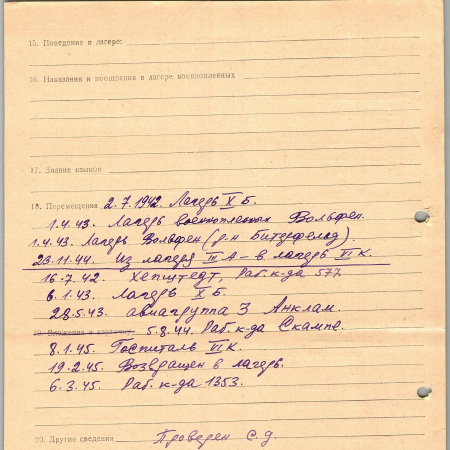 15. Поведение в лагере:
16. Наказания и поощрения в лагере военнопленных
17. Знание языков
18. Перемещения 2.7.1942. Лагерь X Б.
1.4.43. Лагерь военнопленных Вольфен.
1.4.43. Лагерь Вольфен (р-н Биттефельд).
26.11.44. Из лагеря III А – в лагерь VI К.
16.7.42. Хепштедт, Раб. к-да 577
6.1.43. Лагерь X Б.
28.5.43. авиагруппа 3 Анклам.
19. Вложения в карточку 5.8.44. Раб. к-да Скампе.
8.1.45. Госпиталь VI К.
19.2.45. Возвращен в лагерь.
6.3.45. Раб. к-да 1353.
20. Другие сведения Проверен С.д.